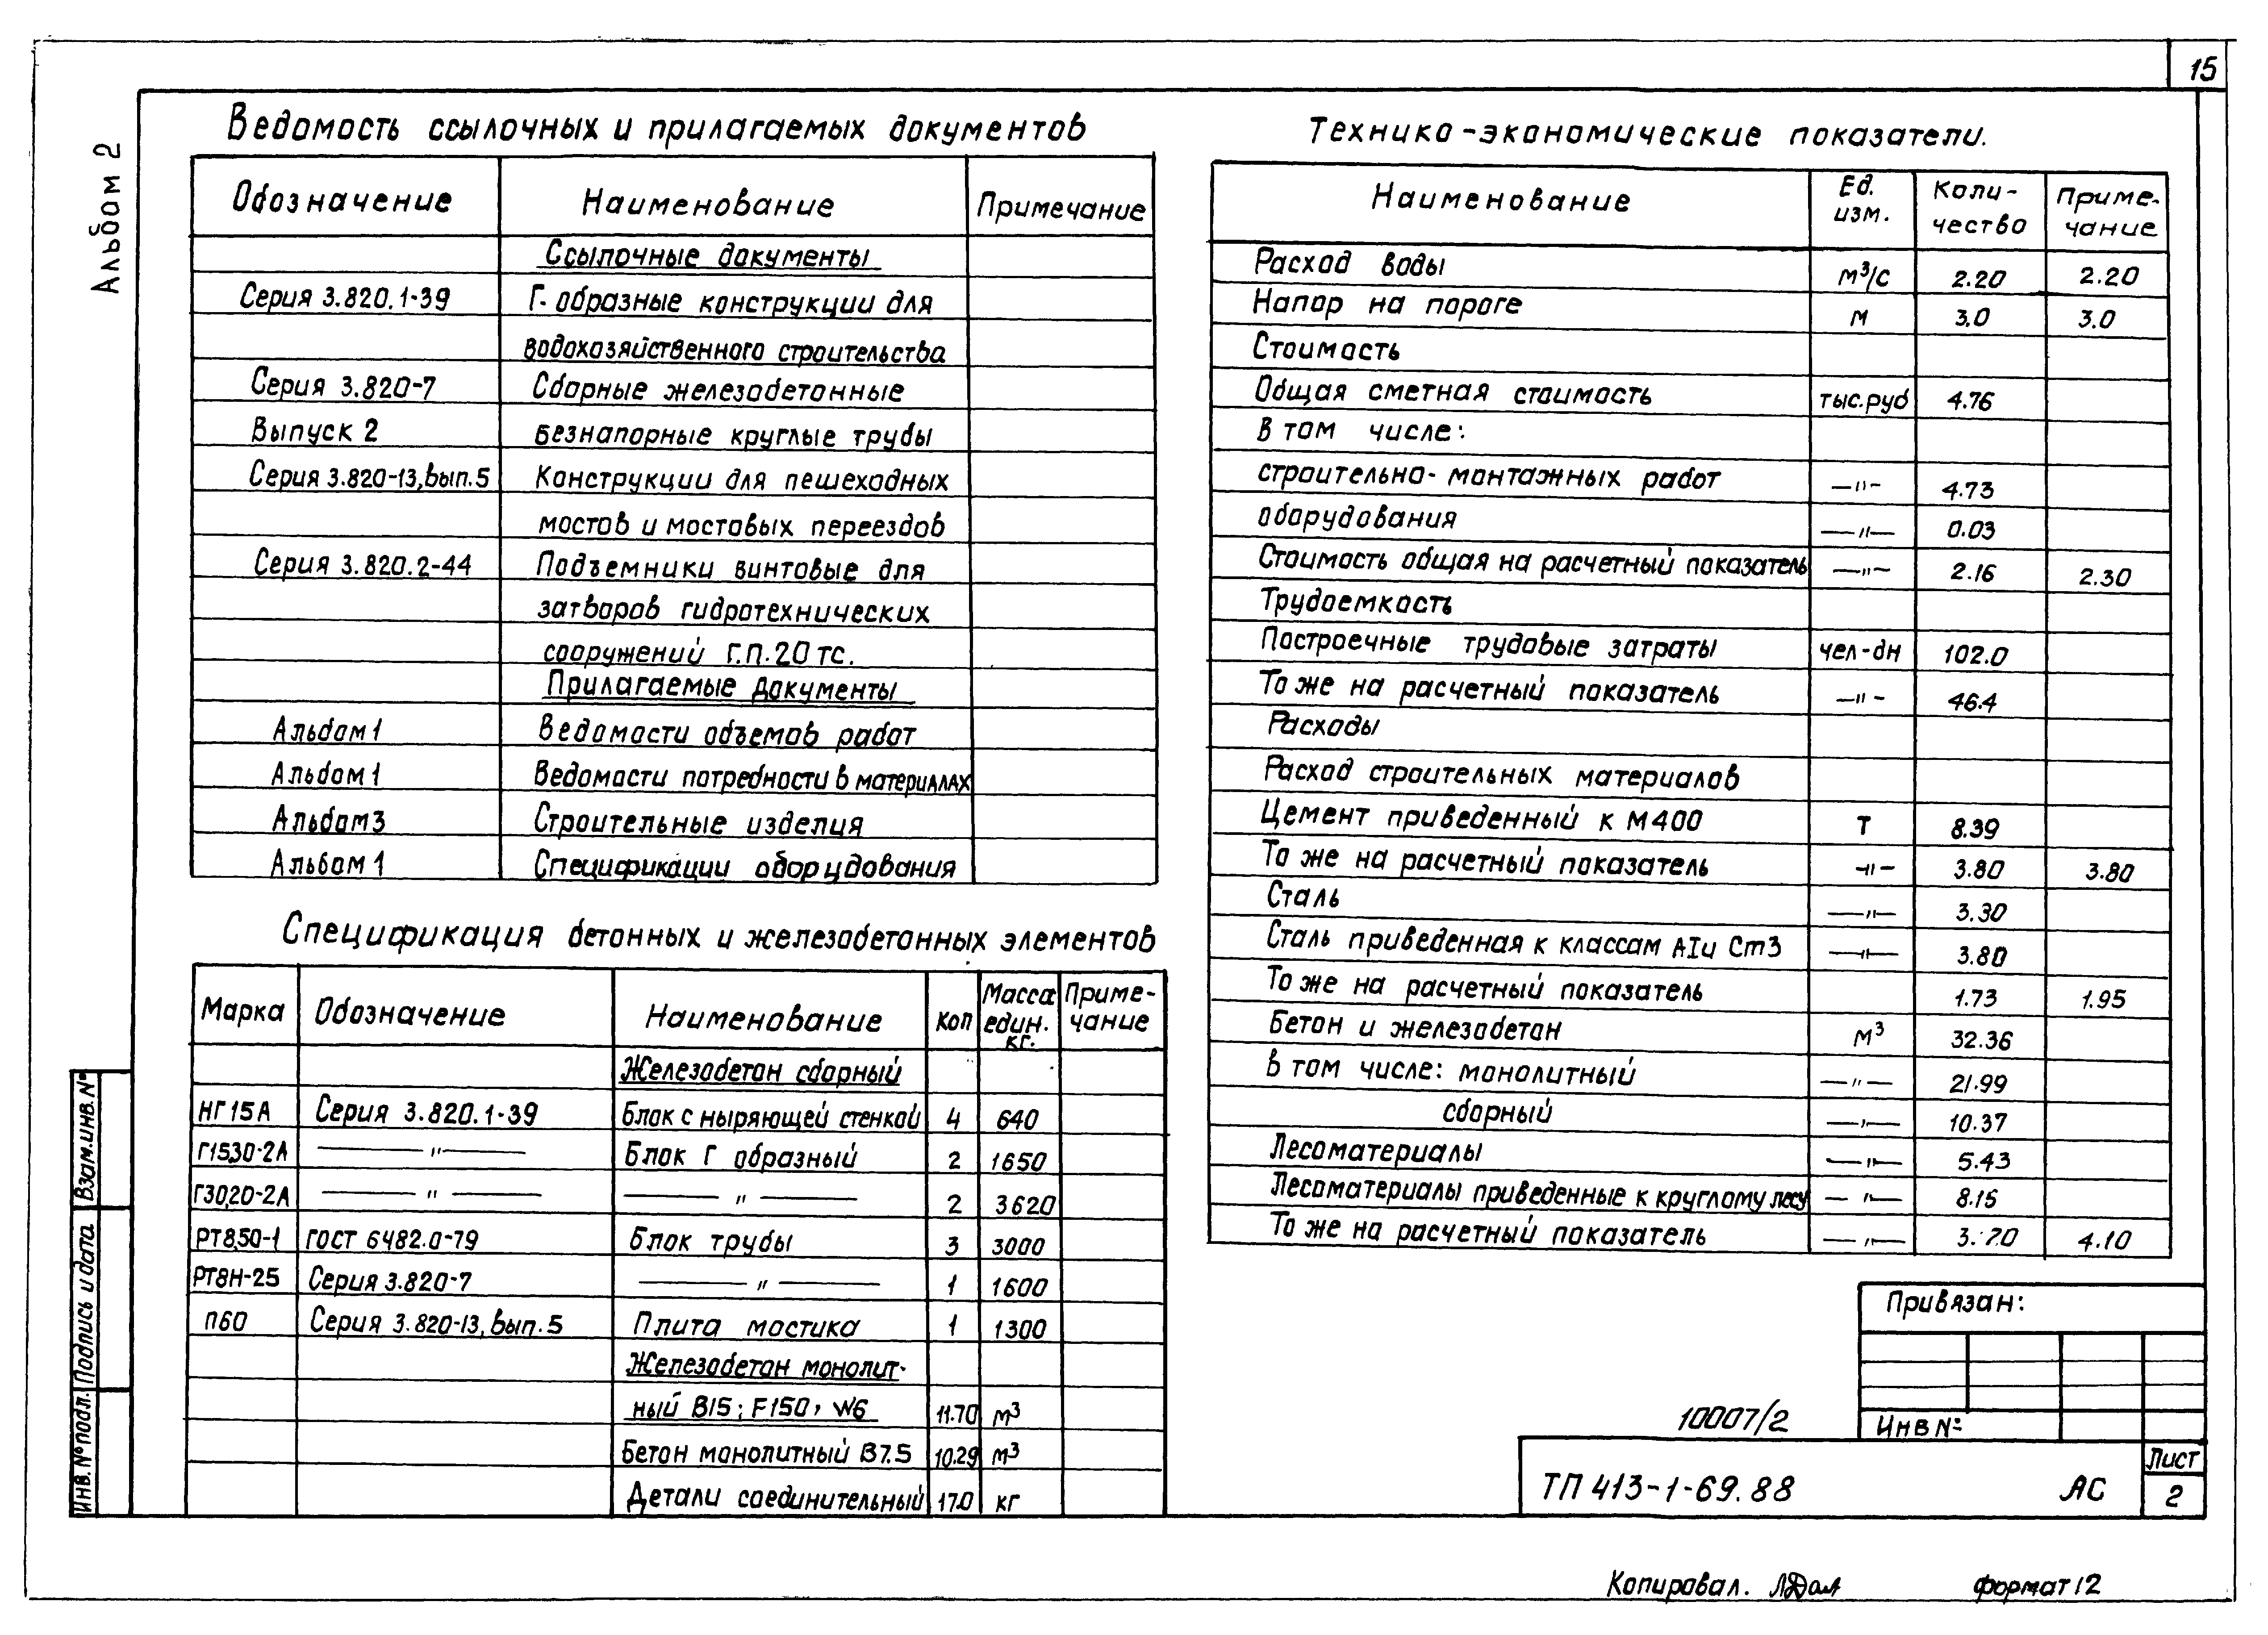 15
Альбом 2
Ведомость ссылочных и прилагаемых документов
Обозначение Наименование Примечание
Ссылочные документы
Серия 3.820.1-39 Г-образные конструкции для
водохозяйственного строительства
Серия 3.820-7 Сборные железобетонные
Выпуск 2 безнапорные круглые трубы
Серия 3.820-13, вып.5 Конструкции для пешеходных
мостов и мостовых переездов
Серия 3.820.2-44 Подъемники винтовые для
затворов гидротехнических
сооружений Г.П.20 тс.
Прилагаемые документы
Альбом 1 Ведомости объемов работ
Альбом 1 Ведомости потребности в материалах
Альбом 3 Строительные изделия
Альбом 1 Спецификации оборудования
Спецификация бетонных и железобетонных элементов
Марка Обозначение Наименование Кол Масса един. кг. Приме-чание
Железобетон сборный
НГ15А Серия 3.820.1-39 Блок с ныряющей стенкой 4 640
Г15.30-2А —"— Блок Г образный 2 1650
Г30.20-2А —"— —"— 2 3620
РТ8.50-1 ГОСТ 6482.0-79 Блок трубы 3 3000
РТ8Н-25 Серия 3.820-7 —"— 1 1600
П60 Серия 3.820-13, вып.5 Плита мостика 1 1300
Железобетон монолит-
ный В15; F150, W6 11.70 м³
Бетон монолитный В7.5 10.29 м³
Детали соединительный 17.0 кг
Технико-экономические показатели.
Наименование Ед. изм. Коли-чество Приме-чание
Расход воды м³/с 2.20 2.20
Напор на пороге м 3.0 3.0
Стоимость
Общая сметная стоимость тыс.руб 4.76
В том числе:
строительно-монтажных работ —"— 4.73
оборудования —"— 0.03
Стоимость общая на расчетный показатель —"— 2.16 2.30
Трудоемкость
Построечные трудовые затраты чел-дн 102.0
То же на расчетный показатель —"— 46.4
Расходы
Расход строительных материалов
Цемент приведенный к М400 т 8.39
То же на расчетный показатель —"— 3.80 3.80
Сталь —"— 3.30
Сталь приведенная к классам АI и Ст3 —"— 3.80
То же на расчетный показатель 1.73 1.95
Бетон и железобетон м³ 32.36
В том числе: монолитный —"— 21.99
сборный —"— 10.37
Лесоматериалы —"— 5.43
Лесоматериалы приведенные к круглому лесу —"— 8.15
То же на расчетный показатель —"— 3.70 4.10
Привязан:
Инв №
10007/2
ТП 413-1-69.88 АС
Лист
2
Инв.№ подл. Подпись и дата Взам.инв.№
Копировал. формат 12